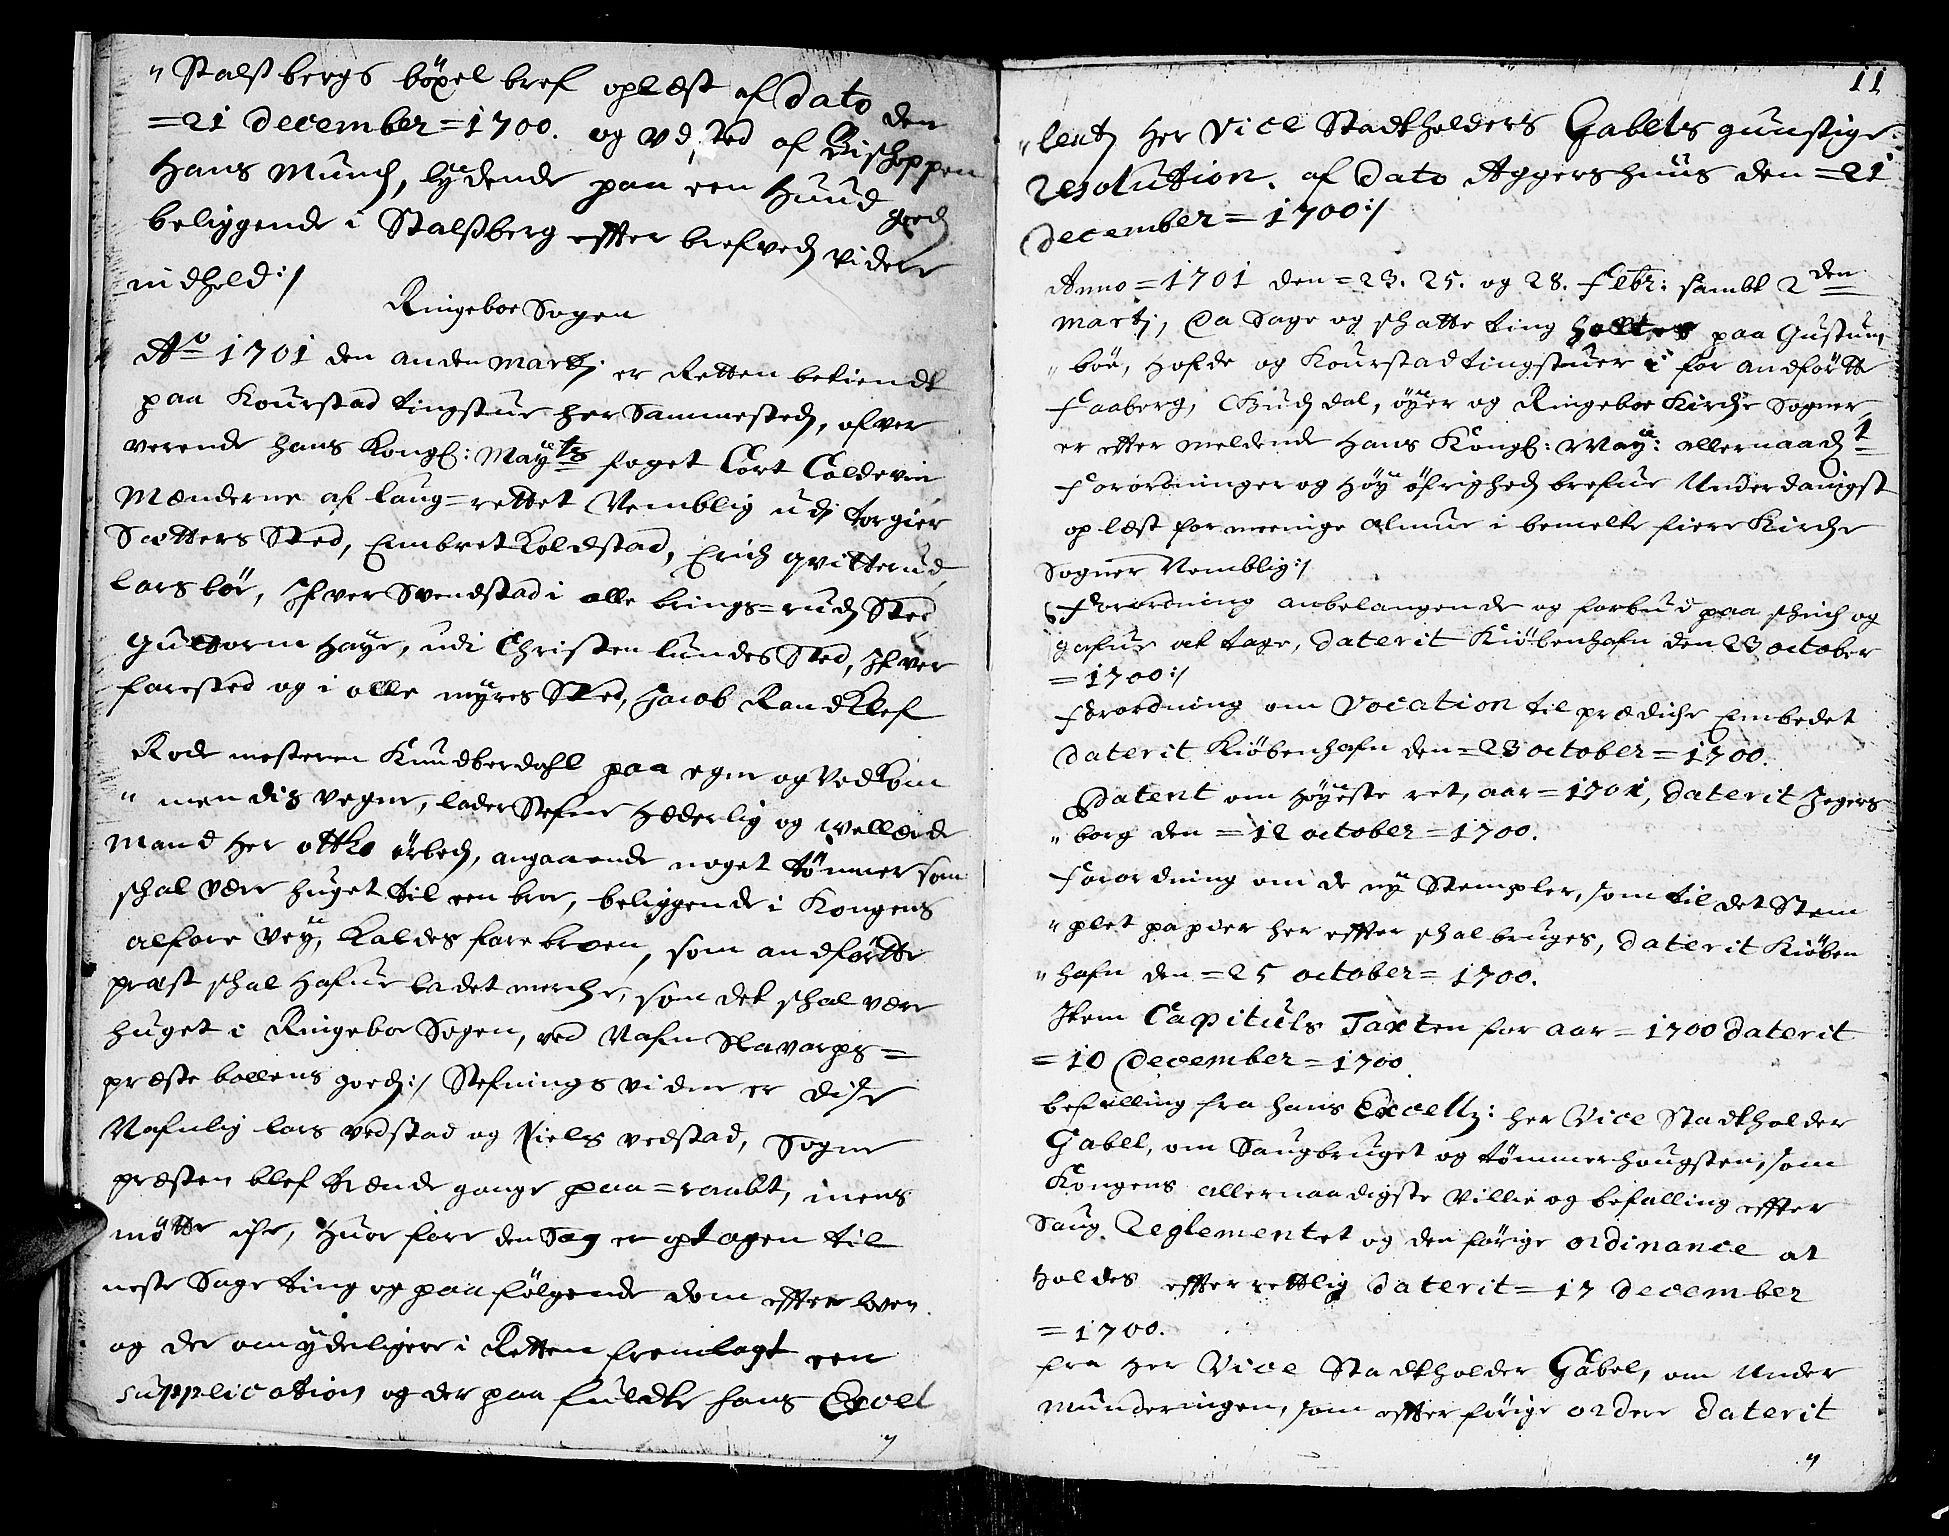 " Stalsbergs böxel bref oplæst af dato den
=21 december=1700. og vdsted af Bischoppen
Hans Munch, lydende paa een Huud goeds
beliggende i Stalsberg effter brefveds videre
indhold:/
Ringeboe Sogen
Ao 1701 den anden martj er Retten betiendt
paa Kourstad tingstue her Sammesteds, ofver
verende hans Kongl: Mayts foget Cort Coldevin
Mænderne af laug=rettet Nemblig udj torgier
Sætters Sted, Embret Koldstad, Erich qvitterud,
lars böe, Ifver Svendstad i olle brings=ruds Sted
Guttorm Haye, udi Christen lundes Sted, Ifver
farested og i olle myres Sted, Jacob Randklef
Rode mesteren Knud berdahl paa egne og vedkom
" mendis vegne, lader Stefne Hæderlig og wellærde
Mand Her ottho örbech, angaaende noget tömmer som
schal være huget til een broe, beliggende i Kongens
alfare vey, Kaldes fare broen, som andförtte
præst schal Hafue ladet merche, som det schal være
huget i Ringeboe Sogen, ved Nafn Slavarps=
præste bollens goeds:/ Stefnings vidne er disse
Nafnlig lars vedstad og Niels vedstad, Sogne
præsten blef trende gange paa=raabt, mens
mötte iche, Huor fore den Sag er optagen til
neste Sage ting og paa fölgende dom effter loven.
og der omydeligere i Retten fremlagt een
supplication og der paa fuldte hans Excel
11
" lentz Her Vice Stadtholders Gabels gunstige
resolution. af dato Aggershuus den =21
december=1700:/
Anno=1701 den=23. 25. og 28. Febr: sambt 2den
martj, Da Sage og schatte ting Holtes paa Gustum
" böe, Hofde og Kourstad tingstuer i for andförtte
Faaberg, Gudsdal, öyer og Ringeboe Kirche Sogner,
er effter meldende Hans Kongl: May: allernaadst
Forordninger og Höy öfrigheds brefue Underdanigst
oplæst for meenige almue i bemelte fiere Kirche
Sogner Nemblig:/
Forordning anbelangende og forbud paa schich og
gafue at tage, daterit Kiöbenhafn den 23 october
=1700:/
Forordning om Vocation til prædiche Embedet
daterit Kiöbenhafn den=23 october=1700.
Patent om Höyeste ret, aar=1701, daterit Jegers
" borg den =12 october=1700.
Forordning om de ny Stempler, som til det Stem
" plet papier her effter schal bruges, daterit Kiöben
" hafn den=25 october=1700.
Item Capituls Taxten for aar=1700 daterit
=10 December=1700.
befalling fra hans Excelltz: her Vice Stadtholder
Gabel, om Saugbruget og tömmerhougsten, som
Kongens allernaadigste Villie og befalling effter
Saug Reglementet og den förige ordinance at
Holdes effterrettlig daterit=17 december
=1700.
fra Her Vice Stadtholder Gabel, om Under
Munderingen, som effter förige ordere daterit